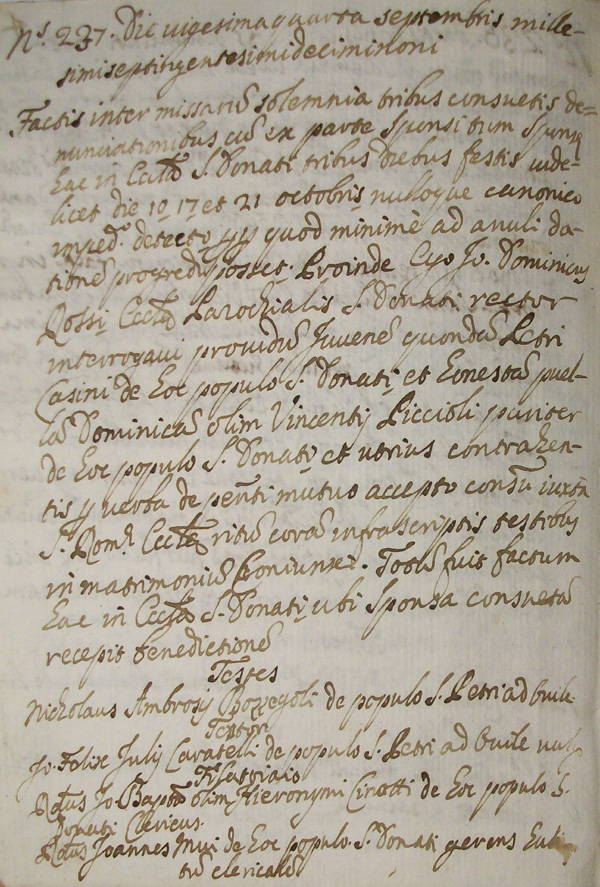 N.° 237. Die vigesima quarta septembris mille-
simiseptingentesimidecimi noni
Factis inter missarū solemnia tribus consuetis de-
nunciationibus cū ex parte sponsi tum sponsę
hac in Ecclā S. Donati tribus diebus festis vide-
licet die 10 17 et 21 octobris nulloque canonico
imped.° detecto quod minimè ad anuli da-
tionē progredi posset. Proinde Ego Jo. Dominicus
Rossi Ecclę Parochialis S. Donati rector
interrogavi providū Juvenē quondā Petri
Casini de hoc populo S. Donati, et honestā puel-
lā Dominicā olim Vincentij Piccioli pariter
de hoc populo S. Donati et utrius contrahen-
tis p verba de pēnti mutuo accepto consū iuxta
S. Rom. Ecclę ritū corā infrascriptis testibus
in matrimoniū Coniunxi. Totū fuit factum
hac in Ecclā S. Donati, ubi Sponsa consuetā
recepit benedictionē
Testes
Nicholaus Ambrosij de populo S. Petri ad Ovile
Tentori
Jo. Felix Julij Caratelli de populo S. Petri ad Ovile
Filatoiaio
Jo. Bapta olim Hieronymi Cinotti de hoc populo S.
Donati Clericus.
Joannes Mui de hoc populo S. Donati gerens habi-
tū clericalē